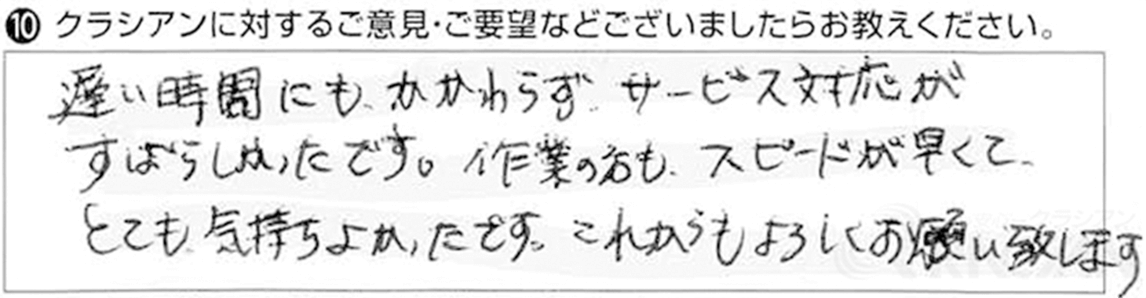 ❿ クラシアンに対するご意見・ご要望などございましたらお教えください。
遅い時間にも、かかわらず、サービス対応が
すばらしかったです。作業の方も、スピードが早くて、
とても気持ちよかったです。これからもよろしくお願い致します
クラシアン